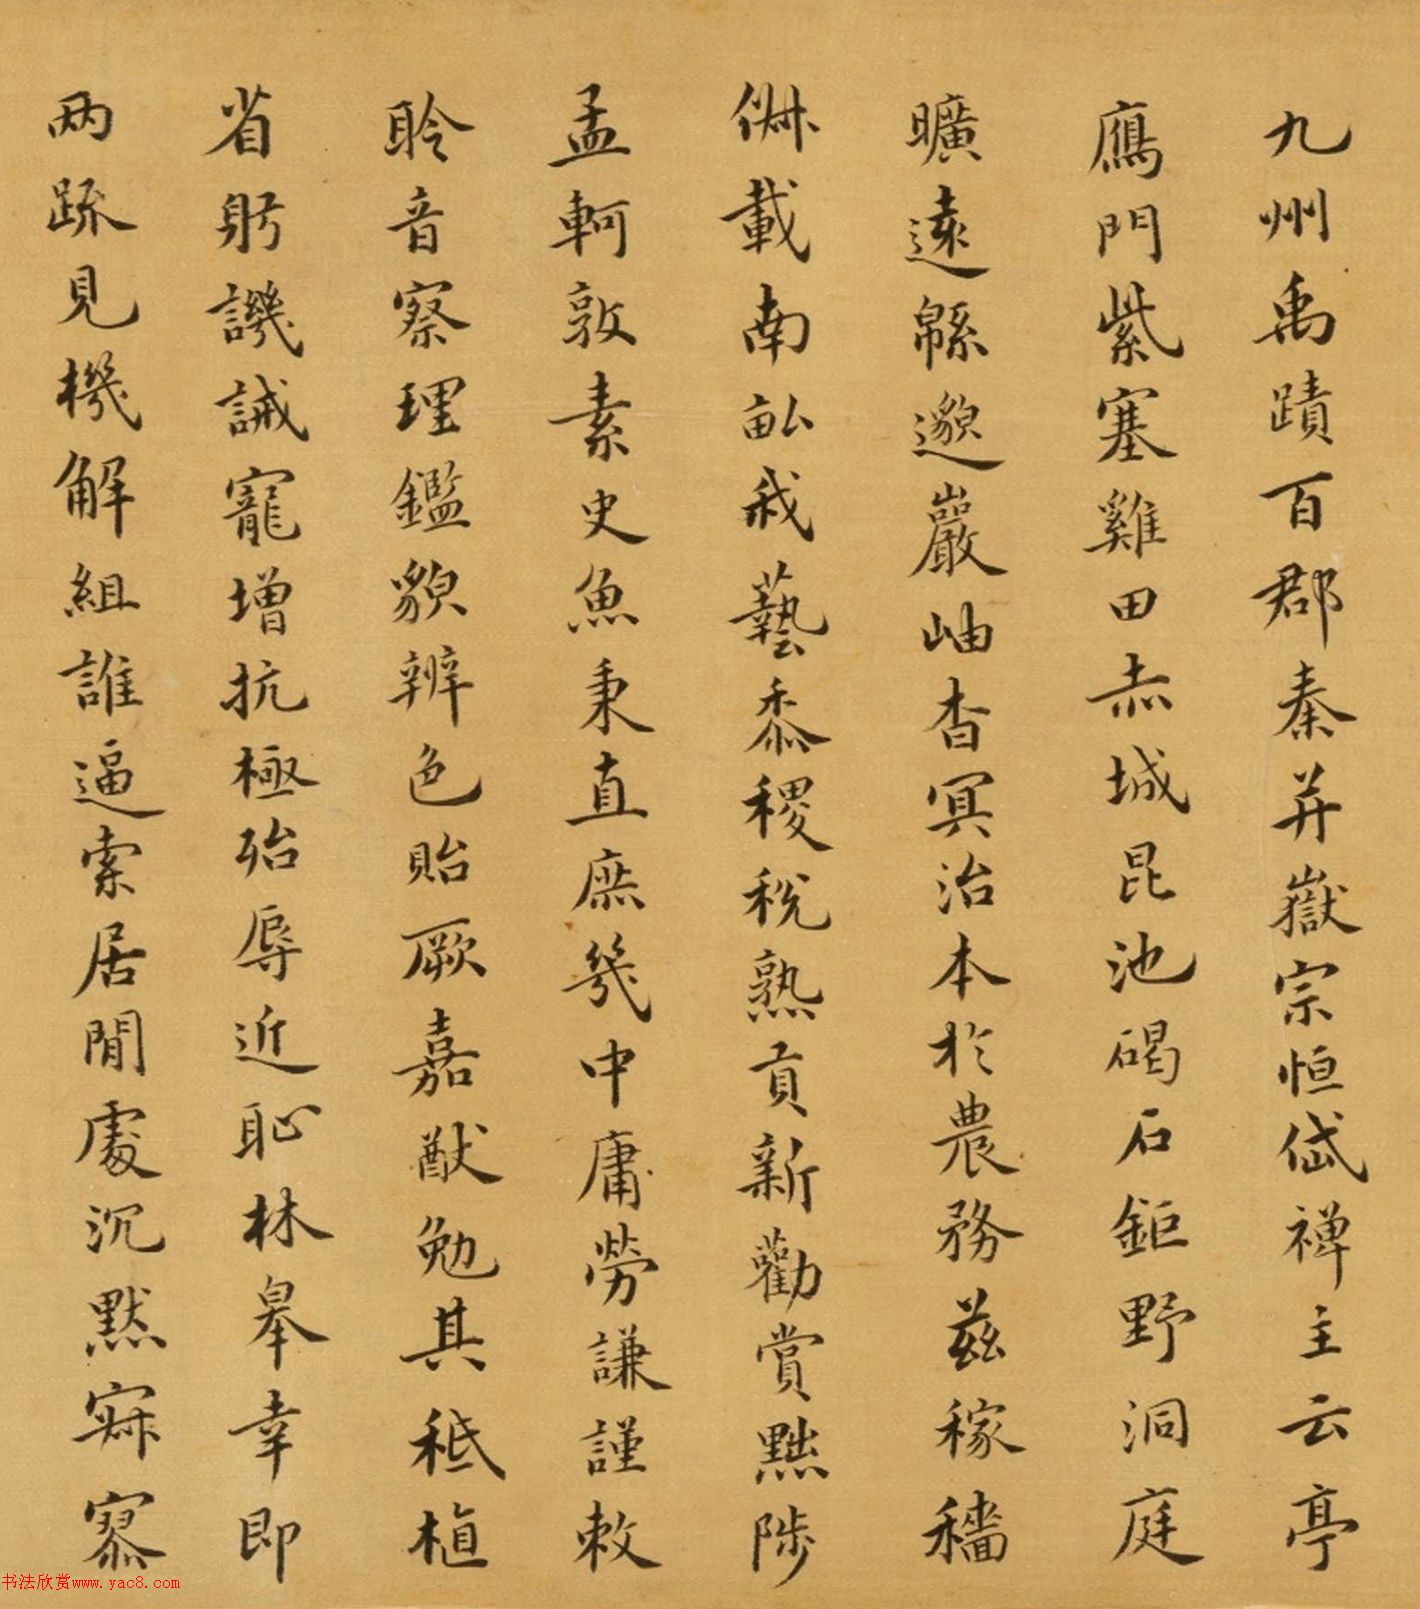 九州禹蹟百郡秦并嶽宗恒岱禅主云亭
鴈門紫塞雞田赤城昆池碣石鉅野洞庭
曠遠緜邈巖岫杳冥治本於農務茲稼穡
俶載南畝我藝黍稷稅熟貢新勸賞黜陟
孟軻敦素史魚秉直庶幾中庸勞謙謹敕
聆音察理鑑貌辨色貽厥嘉猷勉其秪植
省躬譏誡寵增抗極殆辱近恥林皋幸即
兩疏見機解組誰逼索居閒處沉默寂寥
书法欣赏www.yac8.com